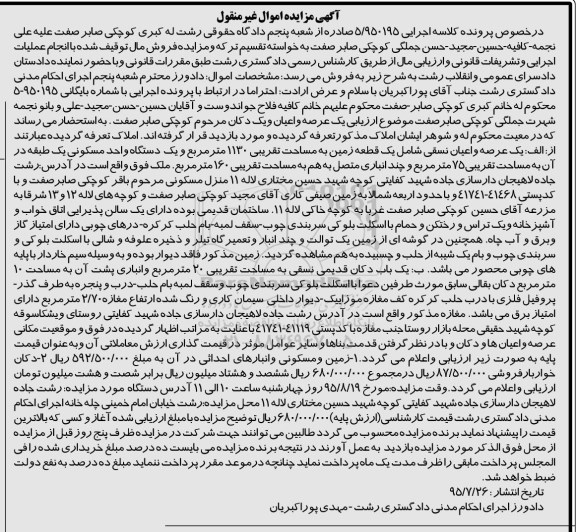 آگهی مزایده اموال غیرمنقول
درخصوص پرونده کلاسه اجرایی ۵/۹۵۰۱۹۵ صادره از شعبه پنجم دادگاه حقوقی رشت له کبری کوچکی صابر صفت علیه علی
نجمه-کافیه-حسین-مجید-حسن جملگی کوچکی صابر صفت به خواسته تقسیم ترکه و مزایده فروش مال توقیف شده با انجام عملیات
اجرایی و تشریفات قانونی و ارزیابی مال از طریق کارشناس رسمی دادگستری رشت طبق مقررات قانونی و با حضور نماینده دادستان
دادسرای عمومی وانقلاب رشت به شرح زیر به فروش می رسد: مشخصات اموال: دادورز محترم شعبه پنجم اجرای احکام مدنی
دادگستری رشت جناب آقای پوراکبریان با سلام و عرض ارادت: احتراما در ارتباط با پرونده اجرایی با شماره بایگانی ۹۵۰۱۹۵-۵
محکوم له خانم کبری کوچکی صابر-صفت محکوم علیهم خانم کافیه فلاح جواندوست و آقایان حسین-حسن-مجید-علی و بانو نجمه
شهرت جملگی کوچکی صابرصفت موضوع ارزیابی یک عرصه واعیان ویک دکان مرحوم کوچکی صابر صفت . به استحضار می رساند
که در معیت محکوم له و شوهر ایشان املاک مذکور تعرفه گردیده و مورد بازدید قرار گرفته اند. املاک تعرفه گردیده عبارتند
از: الف: یک عرصه واعیان نسقی شامل یک قطعه زمین به مساحت تقریبی ۱۱۳۰ مترمربع و یک دستگاه واحد مسکونی یک طبقه در
آن به مساحت تقریبی ۷۵ مترمربع و چند انباری متصل به هم به مساحت تقریبی ۱۶۰ مترمربع. ملک فوق واقع است در آدرس:رشت
جاده لاهیجان دارسازی جاده شهید کفایتی کوچه شهید حسین مختاری لاله ۱۱ منزل مسکونی مرحوم باقر کوچکی صابرصفت و با
کدپستی ۴۱۴۶۸-۴۱۷۴۱ و با حدود اربعه شمالا به زمین صیفی کاری آقای مجید کوچکی صابر صفت و کوچه های لاله ۱۲ و ۱۳ شرقا به
مزرعه آقای حسین کوچکی صابر صفت غربا به کوچه خاکی لاله ۱۱. ساختمان قدیمی بوده دارای یک سالن پذیرایی اتاق خواب و
آشپزخانه ویک تراس و رختکن و حمام با اسکلت بلوکی سربندی چوب-سقف لمبه-بام حلب کرکره-درهای چوبی دارای امتیاز گاز
وبرق و آب چاه. همچنین در گوشه ای از زمین یک توالت و چند انبار وتعمیر گاه تیلر و ذخیره علوفه و شالی با اسکلت بلوکی و
سربندی چوب و بام یک شیبه از حلب و چسبیده به هم مشاهده گردید. زمین مذکور فاقد دیوار بوده و به وسیله سیم خاردار با پایه
های چوبی محصور می باشد. ب: یک باب دکان قدیمی نسقی به مساحت تقریبی ۲۰ مترمربع وانباری پشت آن به مساحت ۱۰
مترمربع دکان بقالی سابق مورث طرفین دعوا با اسکلت بلوکی سربندی چوب و سقف لمبه بام حلب-درب و پنجره به طرف گذر-
پروفیل فلزی با درب حلب کرکره کف مغازه موزاییک-دیوار داخلی سیمان کاری و رنگ شده ارتفاع مغازه ۲/۷۰ مترمربع دارای
امتیاز برق می باشد. مغازه مذکور واقع است در آدرس رشت جاده لاهیجان دارسازی جاده شهید کفایتی روستای ویشکاسوقه
کوچه شهید حقیقی محله بازار روستا جنب مغازه با کدپستی ۴۱۱۱۹-۴۱۷۴۱ با عنایت به مراتب اظهار گردیده در فوق و موقعیت مکانی
عرصه واعیان ها و دکان و با در نظر گرفتن قدمت بناها وسایر عوامل موثر در قیمت گذاری ارزش معاملاتی آن و به عنوان قیمت
پایه به صورت زیر ارزیابی واعلام می گردد.۱-زمین ومسکونی وانبارهای احداثی در آن به مبلغ ۵۹۲/۵۰۰/۰۰۰ ریال ۲-دکان
خواربارفروشی ۸۷/۵۰۰/۰۰۰ ریال درمجموع ۶۸۰/۰۰۰/۰۰۰ ریال ششصد و هشتاد میلیون ریال برابر شصت و هشت میلیون تومان
ارزیابی واعلام می گردد. وقت مزایده:مورخ ۹۵/۸/۱۹ روز چهارشنبه ساعت ۱۰ الی ۱۱ آدرس دستگاه مورد مزایده: رشت جاده
لاهیجان دارسازی جاده شهید کفایتی کوچه شهید حسین مختاری لاله ۱۱ محل مزایده:رشت خیابان امام خمینی چله خانه اجرای احکام
مدنی دادگستری رشت قیمت کارشناسی(ارزش پایه) ۶۸۰/۰۰۰/۰۰۰ ریال توضیح مزایده با مبلغ ارزیابی شده آغاز و کسی که بالاترین
قیمت را پیشنهاد نماید برنده مزایده محسوب می گردد طالبین می توانند جهت شرکت در مزایده ظرف پنج روز قبل از مزایده
از محل فوق الذکر مورد مزایده بازدید به عمل آورند در نتیجه برنده مزایده می بایست ده درصد مبلغ خریداری شده را فی
المجلس پرداخت مابقی را ظرف مدت یک ماه پرداخت نماید چنانچه درموعد مقرر پرداخت ننماید مبلغ ده درصد به نفع دولت
ضبط خواهد شد.
تاریخ انتشار: ۹۵/۷/۲۶
دادورز اجرای احکام مدنی دادگستری رشت -مهدی پوراکبریان